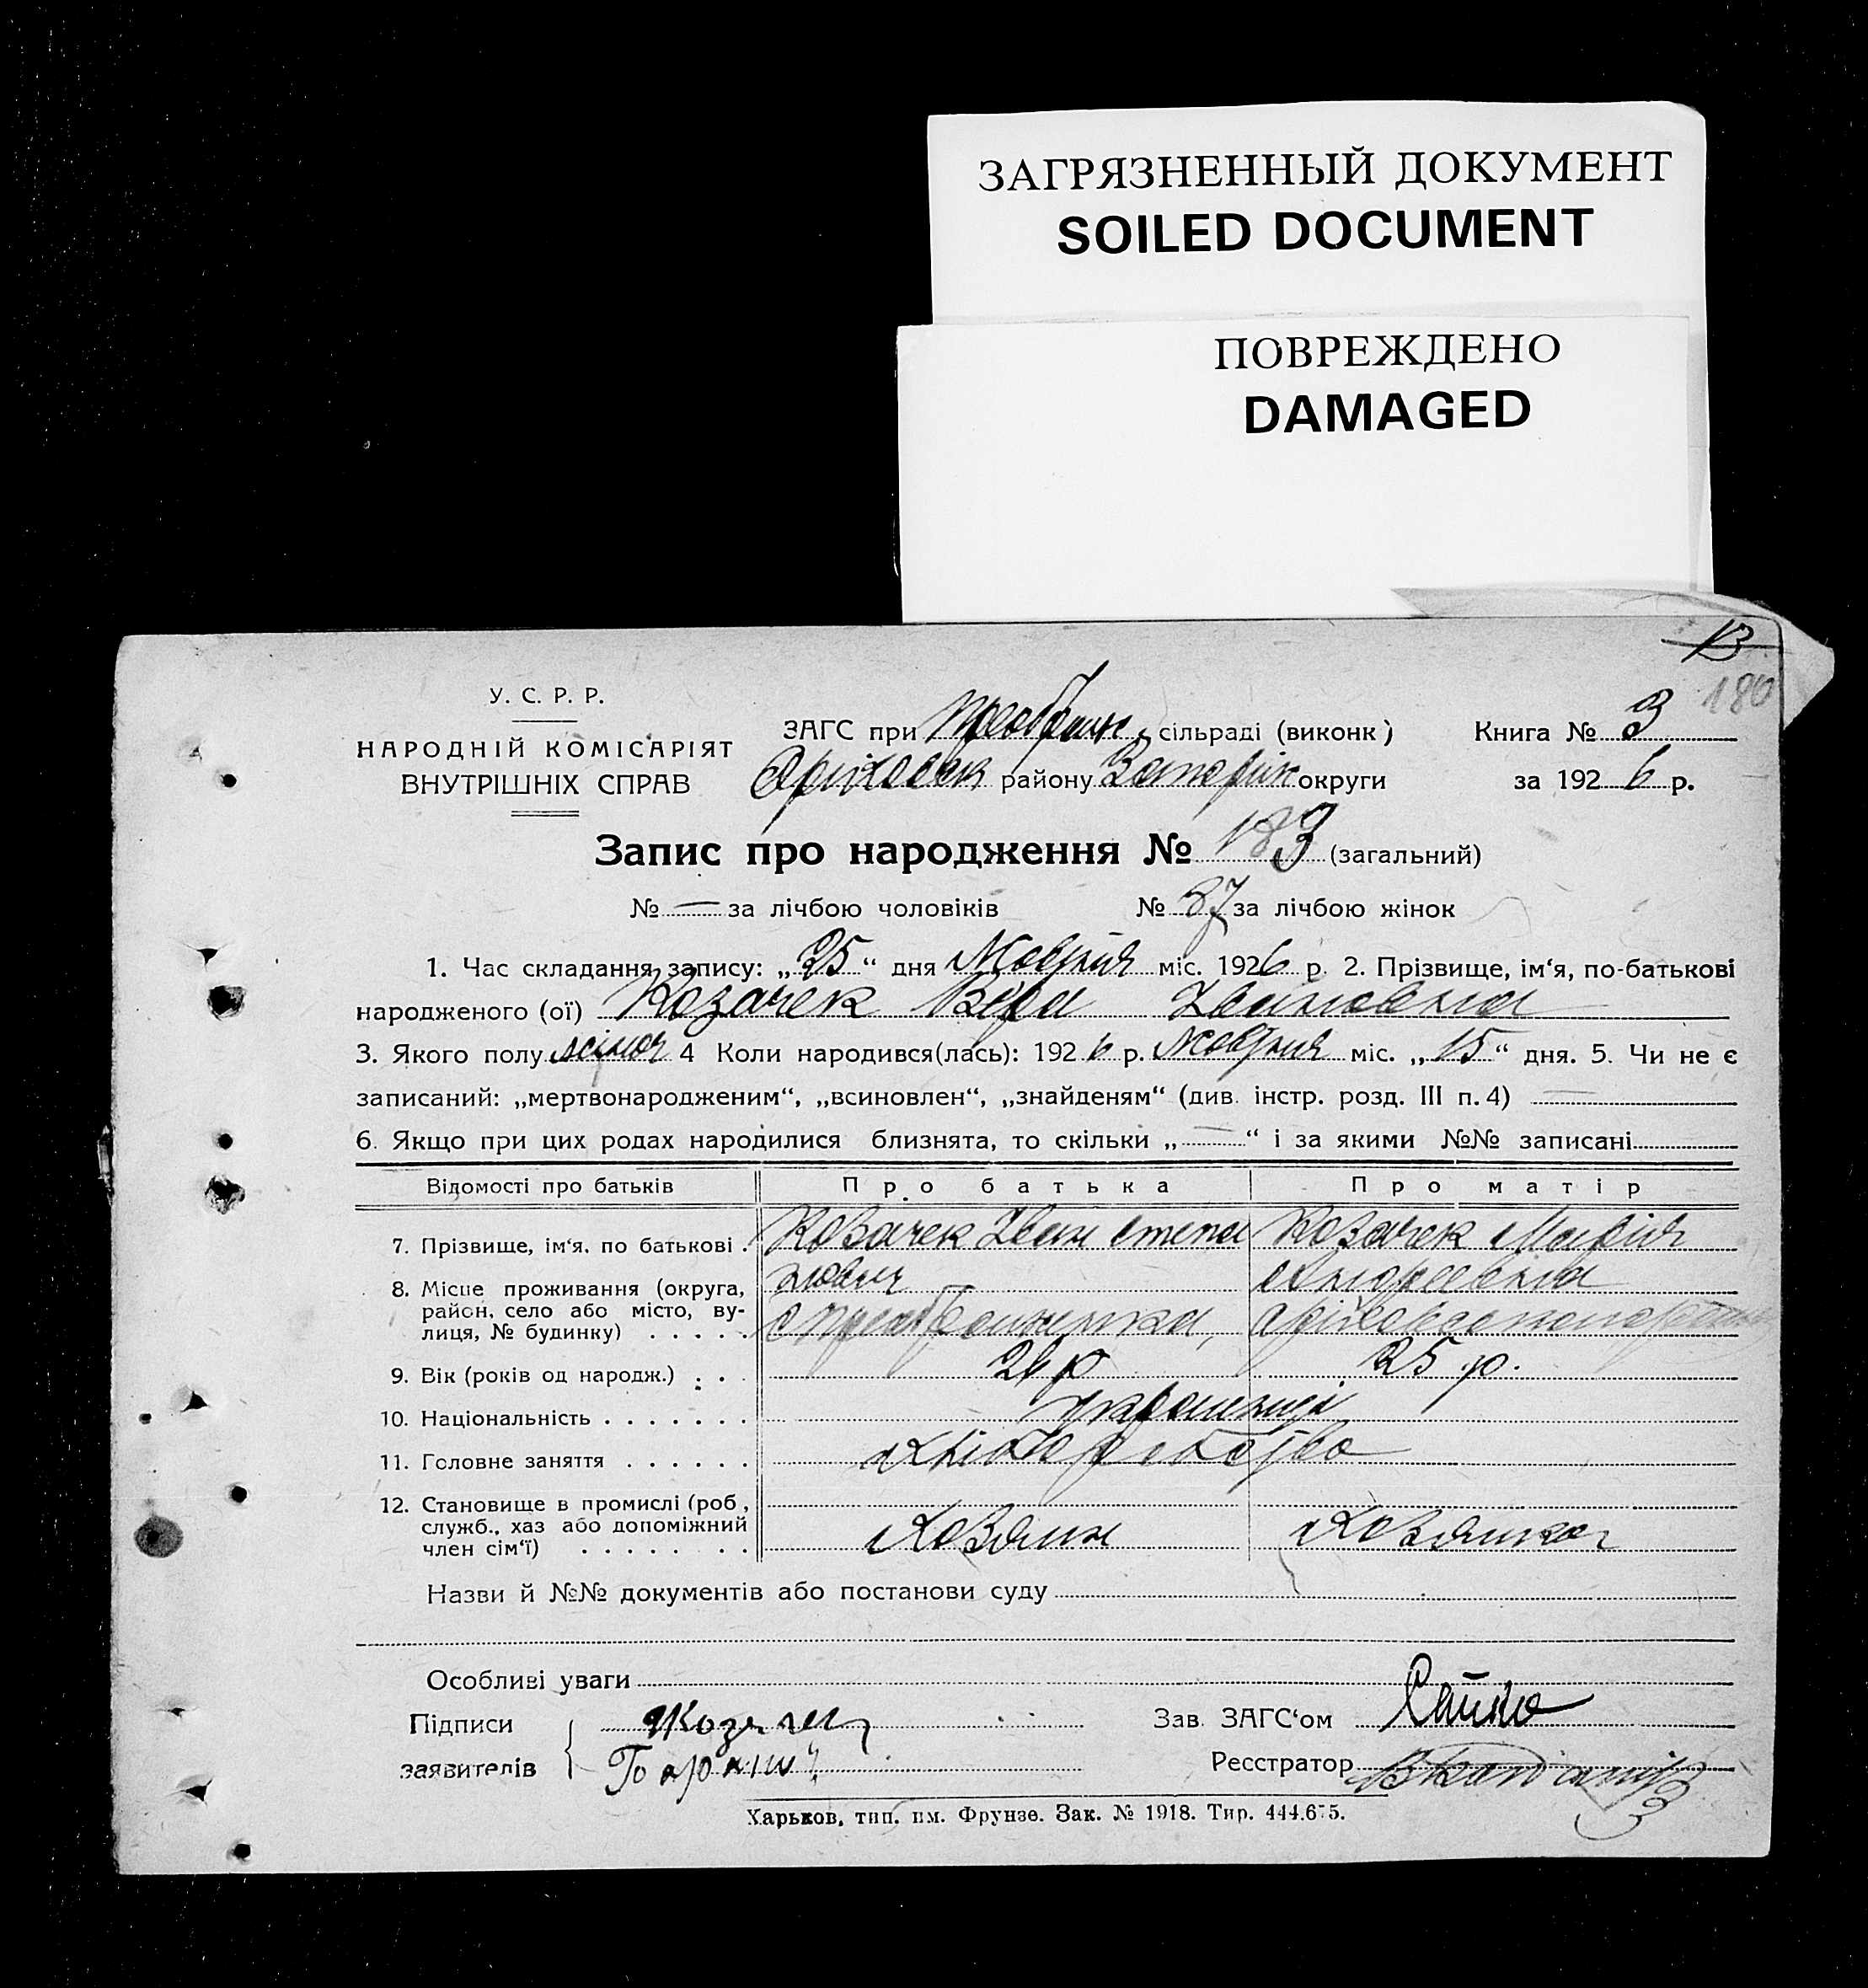 ЗАГРЯЗНЕННЫЙ ДОКУМЕНТ
SOILED DOCUMENT
ПОВРЕЖДЕНО
DAMAGED
13
180
У. С. Р. Р.
НАРОДНІЙ КОМІСАРІЯТ
ВНУТРІШНІХ СПРАВ
ЗАГС при Преображ. сільраді (виконк) Книга № 3
Оріхівськ району Запоріж округи за 1926 р.
Запис про народження № 183 (загальний)
№ — за лічбою чоловіків № 87 за лічбою жінок
1. Час складання запису: „25“ дня Жовтня міс. 1926 р. 2. Прізвище, ім‘я, по-батькові
народженого (ої) Козачек Вера Івановна
3. Якого полу жіноч 4 Коли народився(лась): 1926 р. Жовтня міс. „15“ дня. 5. Чи не є
записаний: „мертвонародженим“, „всиновлен“, „знайденям“ (див. інстр. розд. III п. 4) —
6. Якщо при цих родах народилися близнята, то скільки „—“ і за якими №№ записані
Відомості про батьків Про батька Про матір
7. Прізвище, ім‘я. по батькові . Козачек Іван Степа Козачек Марія
8. Місце проживання (округа, нович Андреевна
район, село або місто, ву-
лиця, № будинку) . . . . . с Преображенка,
9. Вік (років од народж.) . . . 26 р 25 р.
10. Національність . . . . . . . українці
11. Головне заняття . . . . . . Хліборобство
12. Становище в промислі (роб,
служб., хаз або допоміжний Хозяин Хозяйка
член сім‘ї) . . . . . . .
Назви й №№ документів або постанови суду
Особливі уваги
Підписи Козачек Зав. ЗАГС‘ом Сайко
заявителів Реєстратор
Харьков, тип. им. Фрунзе. Зак. № 1918. Тир. 444.675.